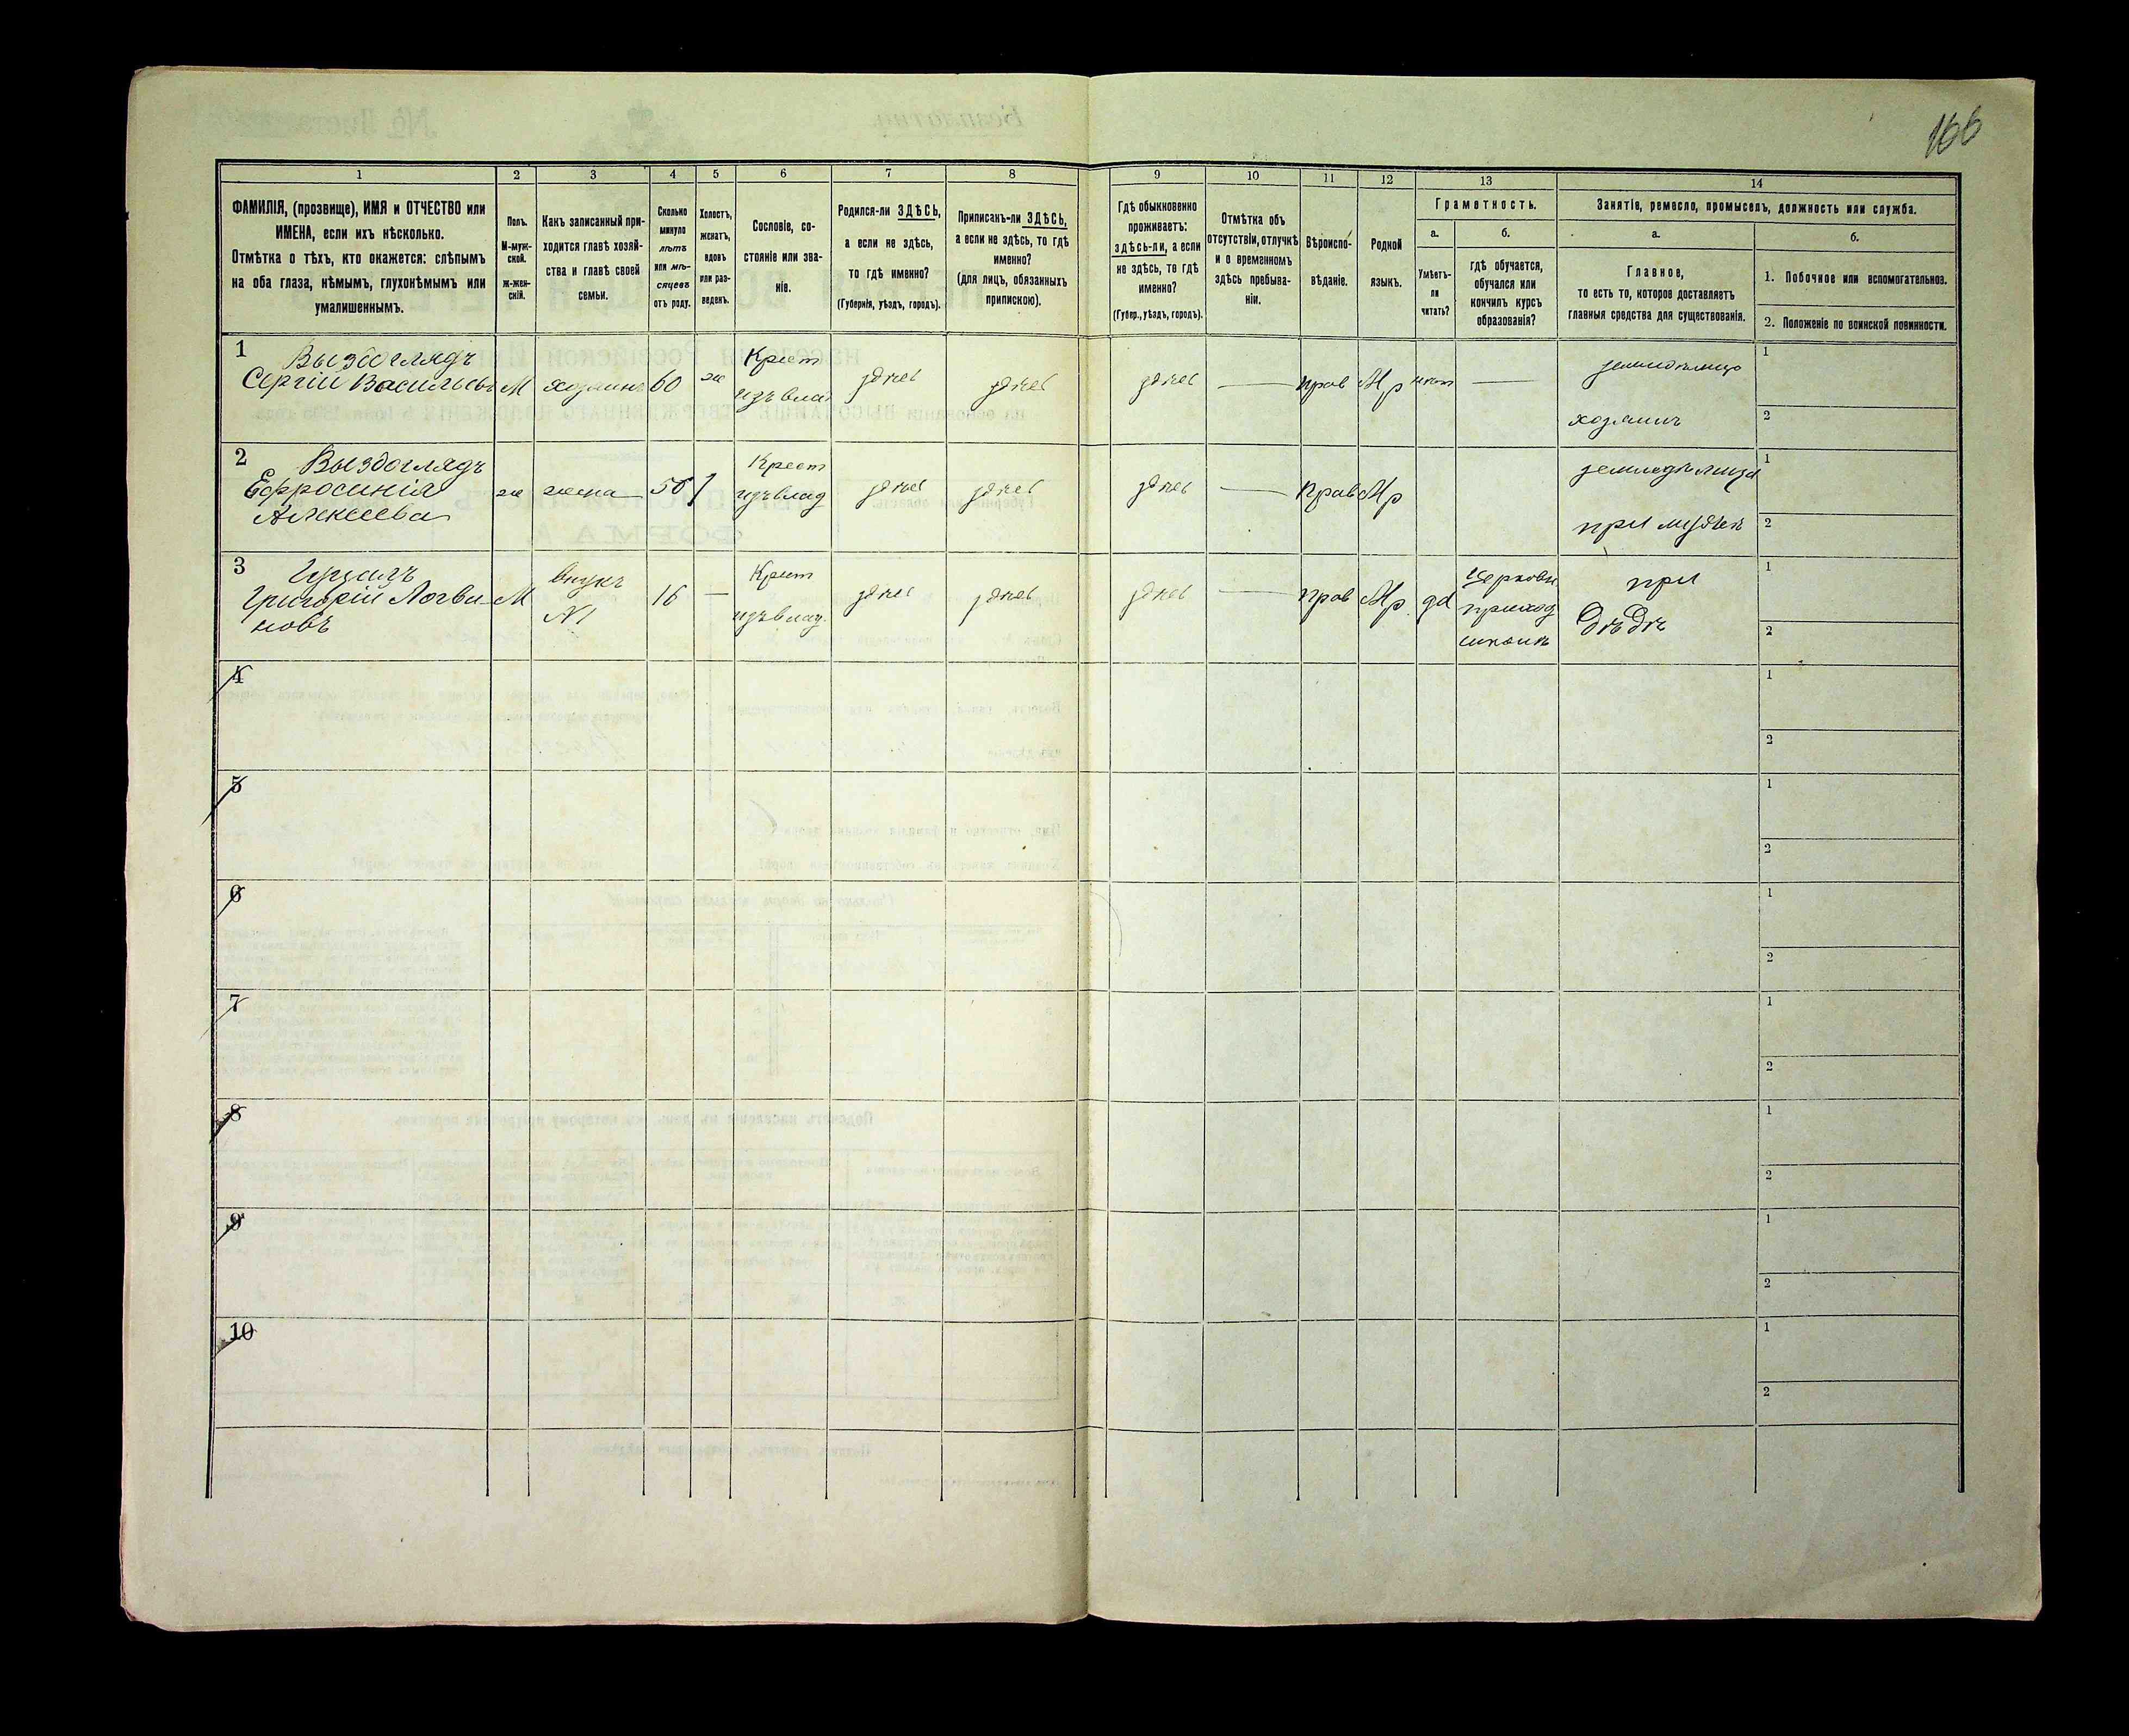 166
1 2 3 4 5 6 7 8 9 10 11 12 13 14
ФАМИЛІЯ, (прозвище), ИМЯ и ОТЧЕСТВО или
ИМЕНА, если ихъ нѣсколько.
Отмѣтка о тѣхъ, кто окажется: слѣпымъ
на оба глаза, нѣмымъ, глухонѣмымъ или
умалишеннымъ.
Полъ.
М-муж-
ской.
ж-жен-
скій.
Какъ записанный при-
ходится главѣ хозяй-
ства и главѣ своей
семьи.
Сколько
минуло
лѣтъ
или мѣ-
сяцевъ
отъ роду.
Холостъ,
женатъ,
вдовъ
или раз-
веденъ.
Сословіе, со-
стояніе или зва-
ніе.
Родился-ли ЗДѢСЬ,
а если не здѣсь,
то гдѣ именно?
(Губернія, уѣздъ, городъ).
Приписанъ-ли ЗДѢСЬ,
а если не здѣсь, то гдѣ
именно?
(для лицъ, обязанныхъ
припискою).
Гдѣ обыкновенно
проживаетъ:
здѣсь-ли, а если
не здѣсь, то гдѣ
именно?
(Губер., уѣздъ, городъ).
Отмѣтка объ
отсутствіи, отлучкѣ
и о временномъ
здѣсь пребыва-
ніи.
Вѣроиспо-
вѣданіе.
Родной
языкъ.
Грамотность.
а.
Умѣетъ-
ли
читать?
б.
гдѣ обучается,
обучался или
кончилъ курсъ
образованія?
Занятіе, ремесло, промыселъ, должность или служба.
а.
Главное,
то есть то, которое доставляетъ
главныя средства для существованія.
б.
1. Побочное или вспомогательное.
2. Положеніе по воинской повинности.
1
Выздоглядъ
Сергій Васильевъ
М
хозяинъ
60
ж
Крест
изъ влад
здѣсь
здѣсь
здѣсь
—
прав
Мр
нѣт
—
хозяинъ
1
2
2
Выздоглядъ
Ефросинія
Алексеева
ж
жена
Крест
изъ влад
здѣсь
здѣсь
здѣсь
—
прав
Мр
при мужѣ
1
2
3
Григорій Логви-
новъ
М
внукъ
№1
16
—
Крест
изъ влад.
здѣсь
здѣсь
здѣсь
—
прав
Мр.
да
Церковн
приход
школѣ
при
дѣдѣ
1
2
4
1
2
5
1
2
6
1
2
7
1
2
8
1
2
9
1
2
10
1
2